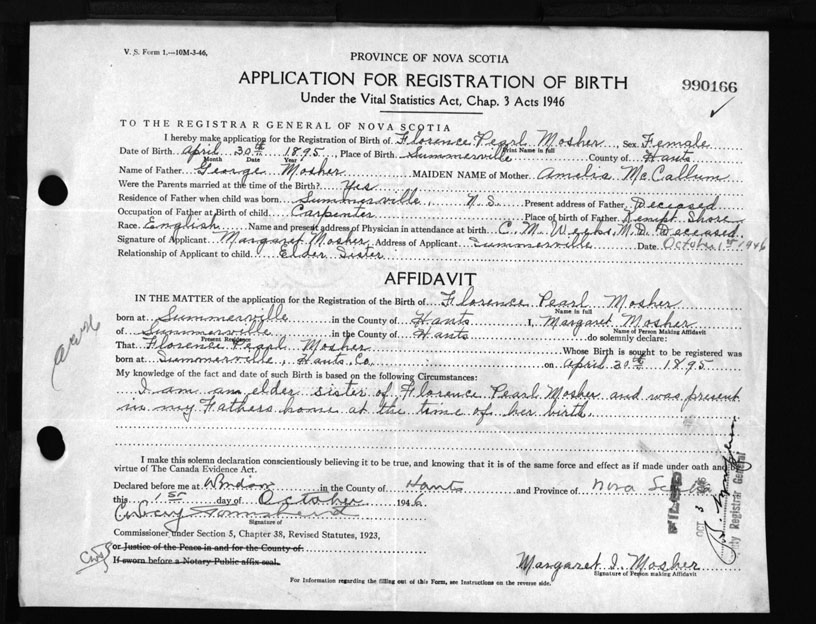 V. S. Form 1.—10M-3-46.
PROVINCE OF NOVA SCOTIA
APPLICATION FOR REGISTRATION OF BIRTH
990166
Under the Vital Statistics Act, Chap. 3 Acts 1946
TO THE REGISTRAR GENERAL OF NOVA SCOTIA
I hereby make application for the Registration of Birth of Florence Pearl Mosher Sex Female
Print Name in full
Date of Birth April 30th 1895, Place of Birth Summerville County of Hants
Month Date Year
Name of Father George Mosher MAIDEN NAME of Mother Amelia McCallum
Were the Parents married at the time of the Birth? Yes
Residence of Father when child was born Summerville, N.S. Present address of Father Deceased
Occupation of Father at Birth of child Carpenter Place of birth of Father Kempt Shore
Race English Name and present address of Physician in attendance at birth C. M. Weeks, M.D. Deceased
Signature of Applicant Margaret Mosher Address of Applicant Summerville Date October 1st 1946
Relationship of Applicant to child Elder Sister
AFFIDAVIT
IN THE MATTER of the application for the Registration of the Birth of Florence Pearl Mosher
Name in full
born at Summerville in the County of Hants I, Margaret Mosher
Name of Person Making Affidavit
of Summerville in the County of Hants do solemnly declare:
Present Residence
That Florence Pearl Mosher Whose Birth is sought to be registered was
born at Summerville, Hants Co. on April 30th 1895
My knowledge of the fact and date of such Birth is based on the following Circumstances:
I am an elder sister of Florence Pearl Mosher and was present
in my Fathers home at the time of her birth.
I make this solemn declaration conscientiously believing it to be true, and knowing that it is of the same force and effect as if made under oath and by
virtue of The Canada Evidence Act.
Declared before me at Windsor in the County of Hants and Province of Nova Scotia
this 1st day of October 1946
Signature of
Commissioner under Section 5, Chapter 38, Revised Statutes, 1923,
or Justice of the Peace in and for the County of
If sworn before a Notary Public affix seal.
FILED
OCT 3
Registrar General
Margaret I. Mosher
Signature of Person making Affidavit
For Information regarding the filling out of this Form, see Instructions on the reverse side.